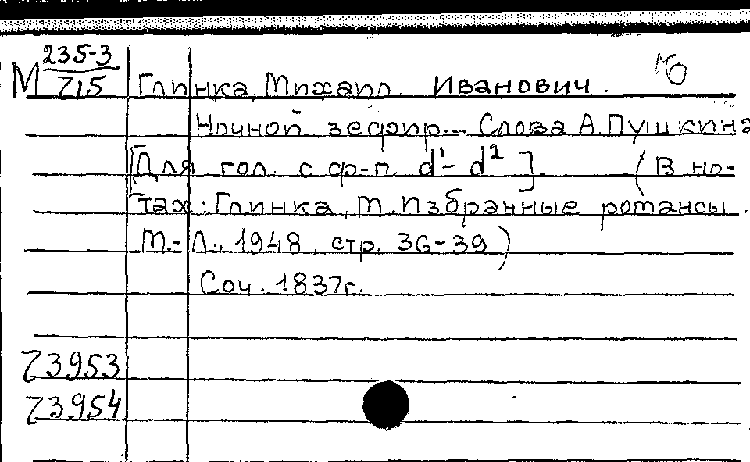 М 235-3
Z15 Глинка, Михаил Иванович.
Ночной зефир... Слова А. Пушкина
[Для гол. с ф-п. d¹- d² ]. (В но-
тах: Глинка, М. Избранные романсы.
М.-Л., 1948, стр. 36-39)
Соч. 1837г.
Z3953
Z3954